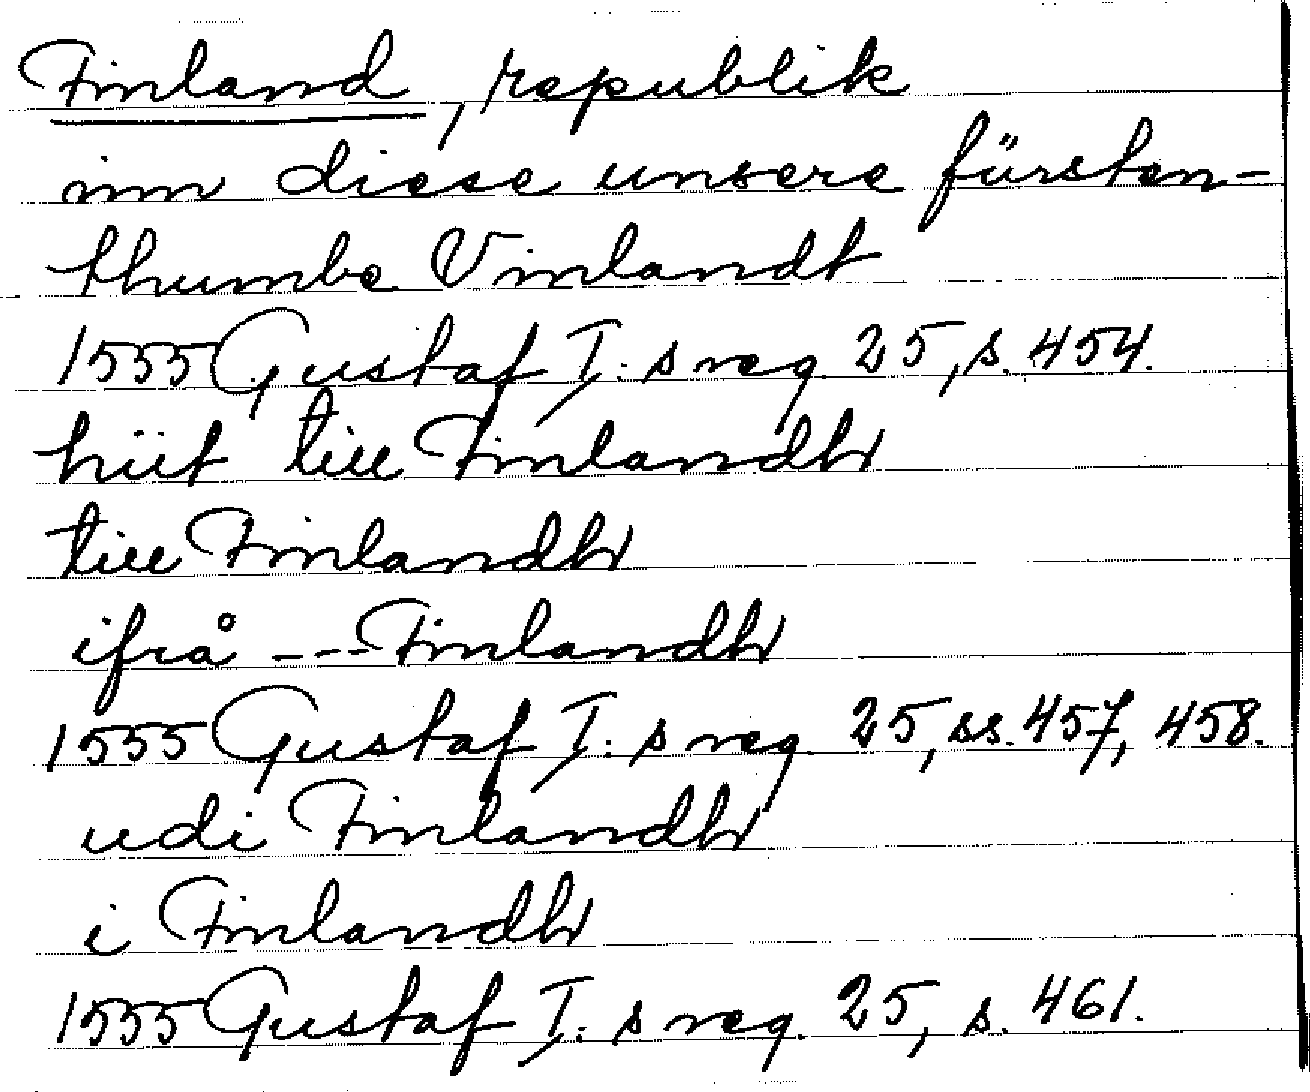 Finland, republik
inn diese unsere fürsten-
thumbe Vinlandt
1555 Gustaf I:s reg. 25, s. 454.
hiit till Finlandh
till Finlandh
ifrå --- Finlandh
1555 Gustaf I:s reg. 25, ss. 457, 458.
udi Finlandh
i Finlandh
1555 Gustaf I:s reg. 25, s. 461.